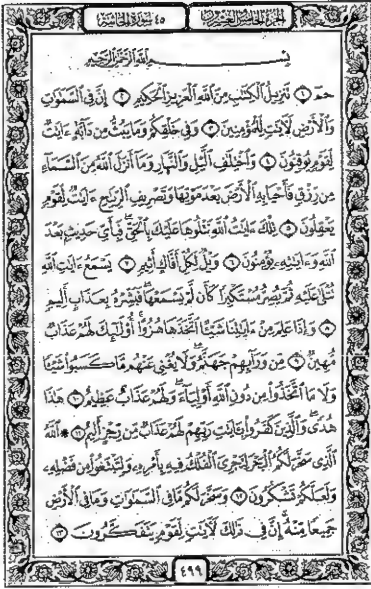 الجزء الخامس والعشرون ٤٥ سورة الجاثية
بِسْمِ اللَّهِ الرَّحْمَٰنِ الرَّحِيمِ
حمٓ ١ تَنزِيلُ الْكِتَٰبِ مِنَ اللَّهِ الْعَزِيزِ الْحَكِيمِ ٢ إِنَّ فِي السَّمَٰوَٰتِ
وَالْأَرْضِ لَءَايَٰتٍ لِّلْمُؤْمِنِينَ ٣ وَفِي خَلْقِكُمْ وَمَا يَبُثُّ مِن دَآبَّةٍ ءَايَٰتٌ
لِّقَوْمٍ يُوقِنُونَ ٤ وَاخْتِلَٰفِ الَّيْلِ وَالنَّهَارِ وَمَآ أَنزَلَ اللَّهُ مِنَ السَّمَآءِ
مِن رِّزْقٍ فَأَحْيَا بِهِ الْأَرْضَ بَعْدَ مَوْتِهَا وَتَصْرِيفِ الرِّيَٰحِ ءَايَٰتٌ لِّقَوْمٍ
يَعْقِلُونَ ٥ تِلْكَ ءَايَٰتُ اللَّهِ نَتْلُوهَا عَلَيْكَ بِالْحَقِّ فَبِأَيِّ حَدِيثٍ بَعْدَ
اللَّهِ وَءَايَٰتِهِۦ يُؤْمِنُونَ ٦ وَيْلٌ لِّكُلِّ أَفَّاكٍ أَثِيمٍ ٧ يَسْمَعُ ءَايَٰتِ اللَّهِ
تُتْلَىٰ عَلَيْهِ ثُمَّ يُصِرُّ مُسْتَكْبِرًا كَأَن لَّمْ يَسْمَعْهَا فَبَشِّرْهُ بِعَذَابٍ أَلِيمٍ
٨ وَإِذَا عَلِمَ مِنْ ءَايَٰتِنَا شَيْـًٔا اتَّخَذَهَا هُزُوًا أُو۟لَٰٓئِكَ لَهُمْ عَذَابٌ
مُّهِينٌ ٩ مِّن وَرَآئِهِمْ جَهَنَّمُ وَلَا يُغْنِي عَنْهُم مَّا كَسَبُوا۟ شَيْـًٔا
وَلَا مَا اتَّخَذُوا۟ مِن دُونِ اللَّهِ أَوْلِيَآءَ وَلَهُمْ عَذَابٌ عَظِيمٌ ١٠ هَٰذَا
هُدًى وَالَّذِينَ كَفَرُوا۟ بِـَٔايَٰتِ رَبِّهِمْ لَهُمْ عَذَابٌ مِّن رِّجْزٍ أَلِيمٌ ١١ ۞ اللَّهُ
الَّذِي سَخَّرَ لَكُمُ الْبَحْرَ لِتَجْرِيَ الْفُلْكُ فِيهِ بِأَمْرِهِۦ وَلِتَبْتَغُوا۟ مِن فَضْلِهِۦ
وَلَعَلَّكُمْ تَشْكُرُونَ ١٢ وَسَخَّرَ لَكُم مَّا فِي السَّمَٰوَٰتِ وَمَا فِي الْأَرْضِ
جَمِيعًا مِّنْهُ إِنَّ فِي ذَٰلِكَ لَءَايَٰتٍ لِّقَوْمٍ يَتَفَكَّرُونَ ١٣
٤٩٩